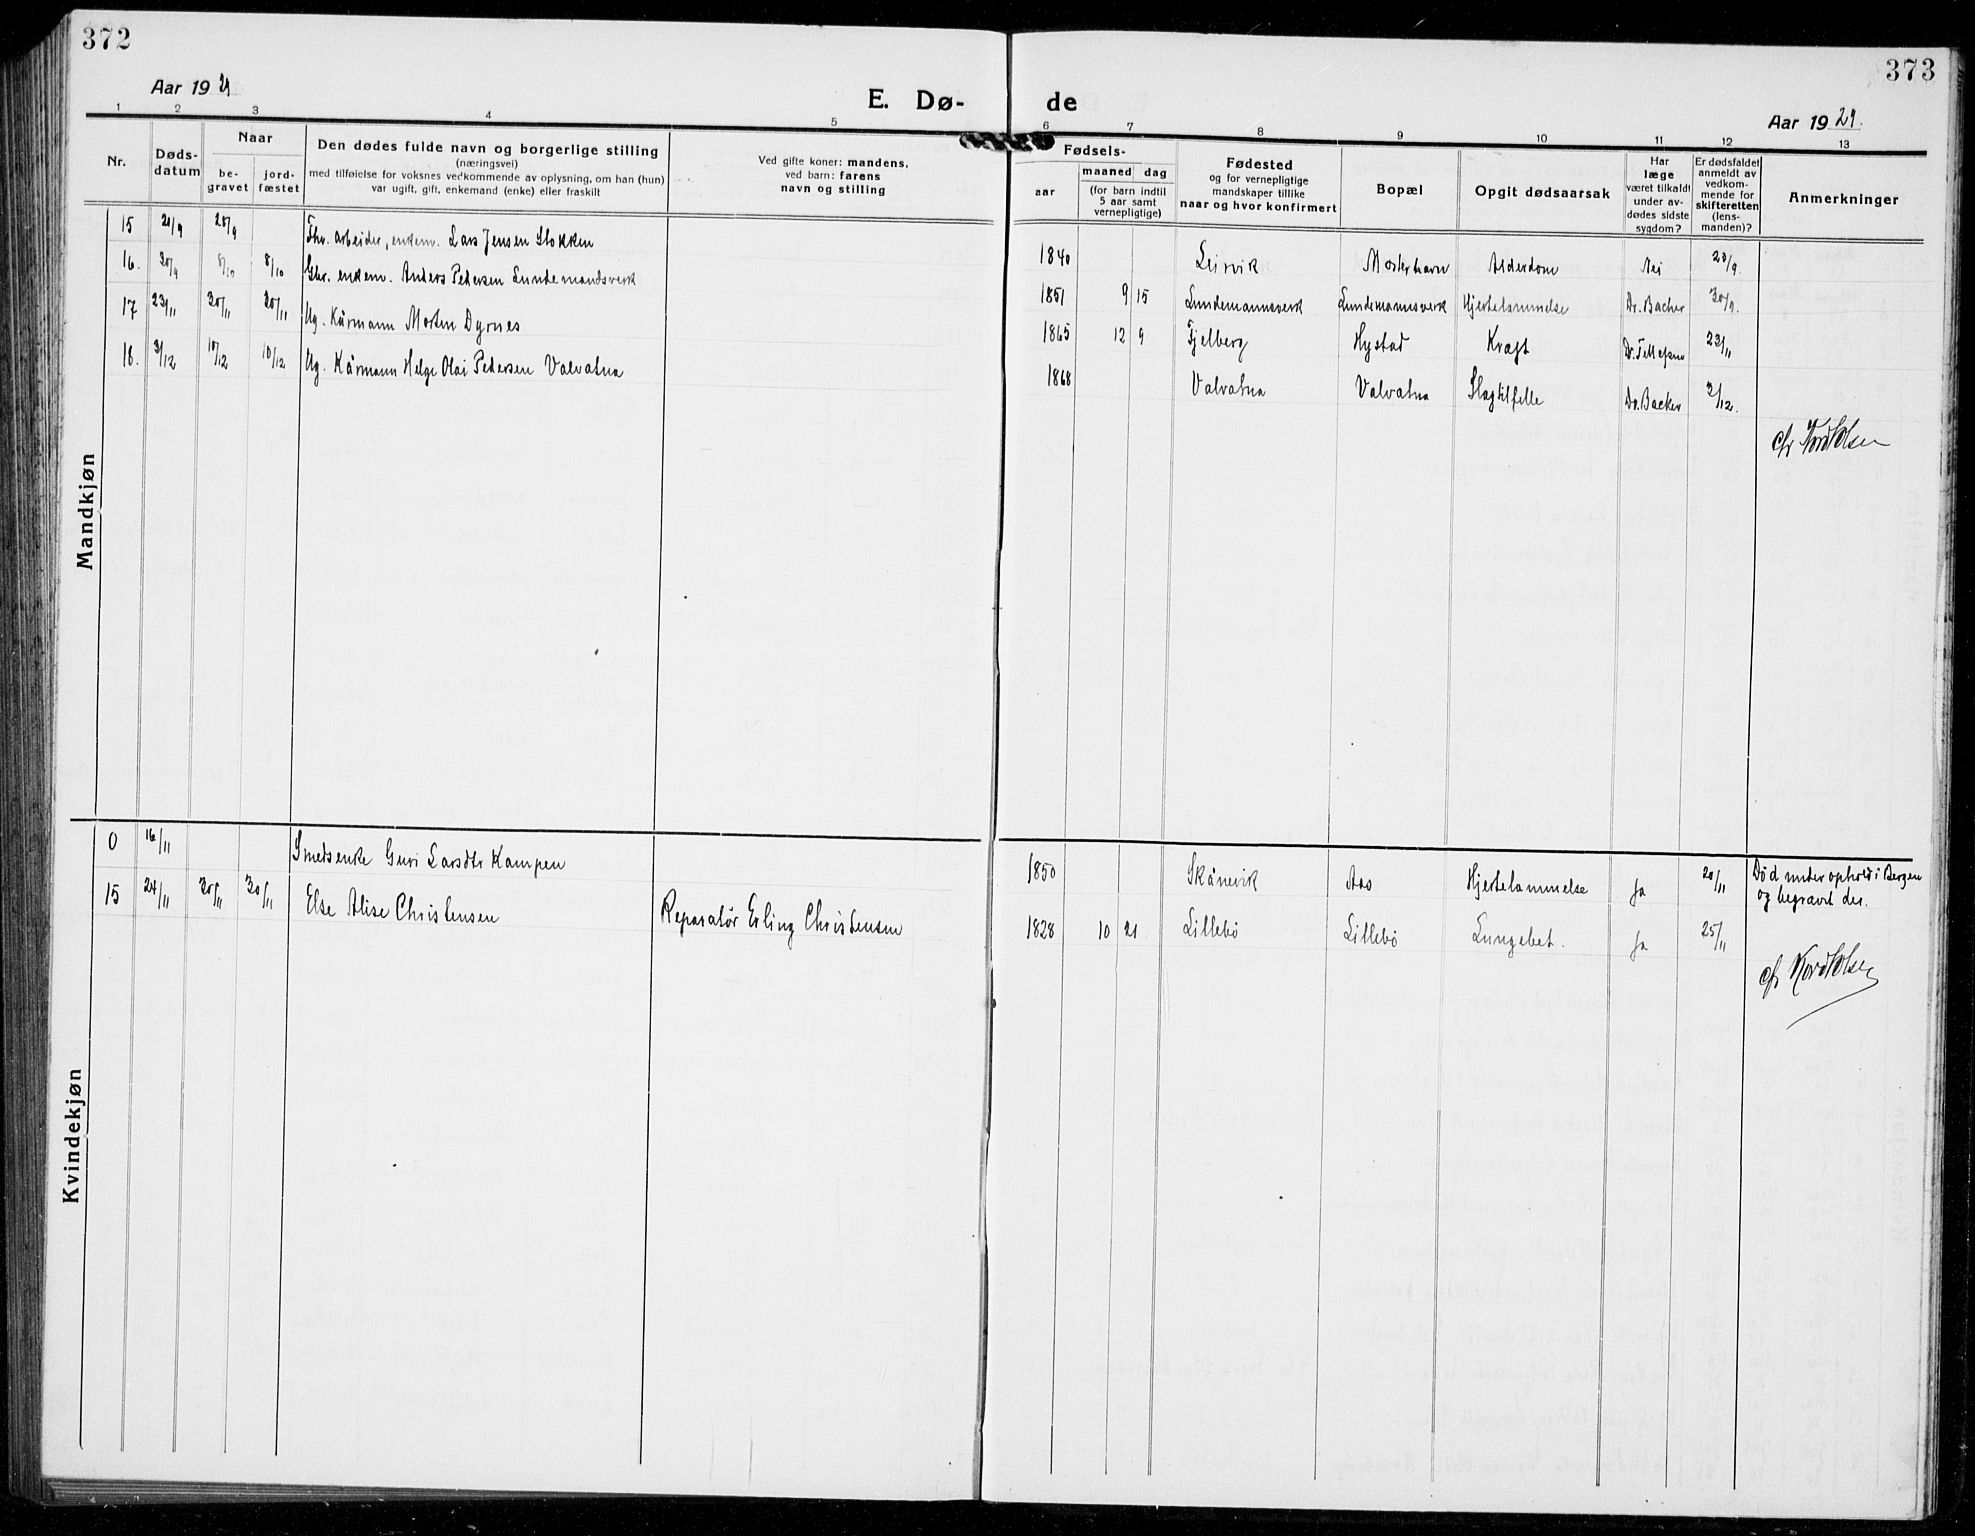 372
Aar 1929
E. Dø-
1 2 3 4 5
Nr.
Døds-
datum
Naar
be-
gravet
jord-
fæstet
Den dødes fulde navn og borgerlige stilling
(næringsvei)
med tilføielse for voksnes vedkommende av oplysning, om han (hun)
var ugift, gift, enkemand (enke) eller fraskilt
Ved gifte koner: mandens,
ved barn: farens
navn og stilling
Mandkjøn
15 21/9 28/9 arbeider, enkem. Lars Jensen Stokken
16. 30/9 8/10 8/10 enkem. Anders Pedersen Lundemandsverk
17 23/11 30/11 30/11 Ug. Kårmann Morten Dyrnes
18. 3/12 10/12 10/12 Ug. Kårmann Helge Olai Pedersen Valvatna
Kvindekjøn
0 16/11 Smedsenke Guri Larsdtr Kampen
15 24/11 30/11 30/11 Else Alise Christensen Reparatør Erling Christensen
373
de
Aar 1929.
6 7 8 9 10 11 12 13
Fødsels-
aar
maaned dag
(for barn indtil
5 aar samt
vernepligtige)
Fødested
og for vernepligtige
mandskaper tillike
naar og hvor konfirmert
Bopæl
Opgit dødsaarsak
Har
læge
været tilkaldt
under av-
dødes sidste
sygdom?
Er dødsfaldet
anmeldt av
vedkom-
mende for
skifteretten
(lens-
manden)?
Anmerkninger
1840 Leirvik Mosterhavn Alderdom Nei 23/9
1851 9 15 Lundemannsverk Lundemannsverk Hjertelammelse Dr. Backer 30/9.
1865 12 9 Fjelberg Hystad Kræft Dr. Tillefsen 23/11
1868 Valvatna Valvatna Slagtilfelle Dr. Backer 3/12.
1850 Skånevik Aas Hjertelammelse Ja 20/11 Død under ophold i Bergen
og begravt der.
1828 10 21 Lillebø Lillebø Lungebet. Ja 25/11